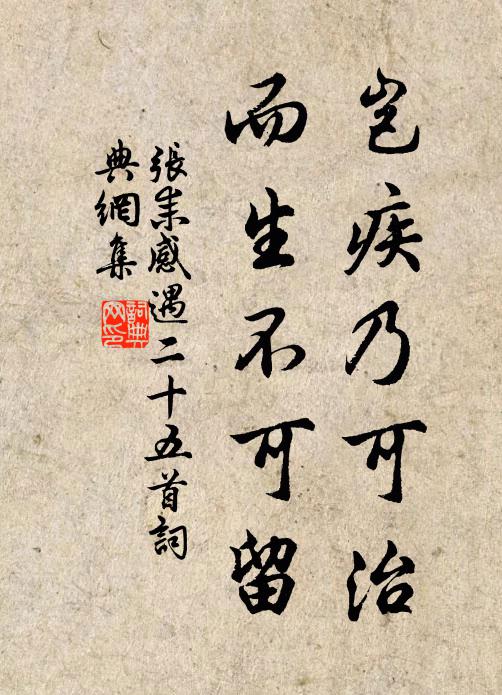 豈疾乃可治
而生不可留
張耒感遇二十五首詞
典網集
詞典
网印